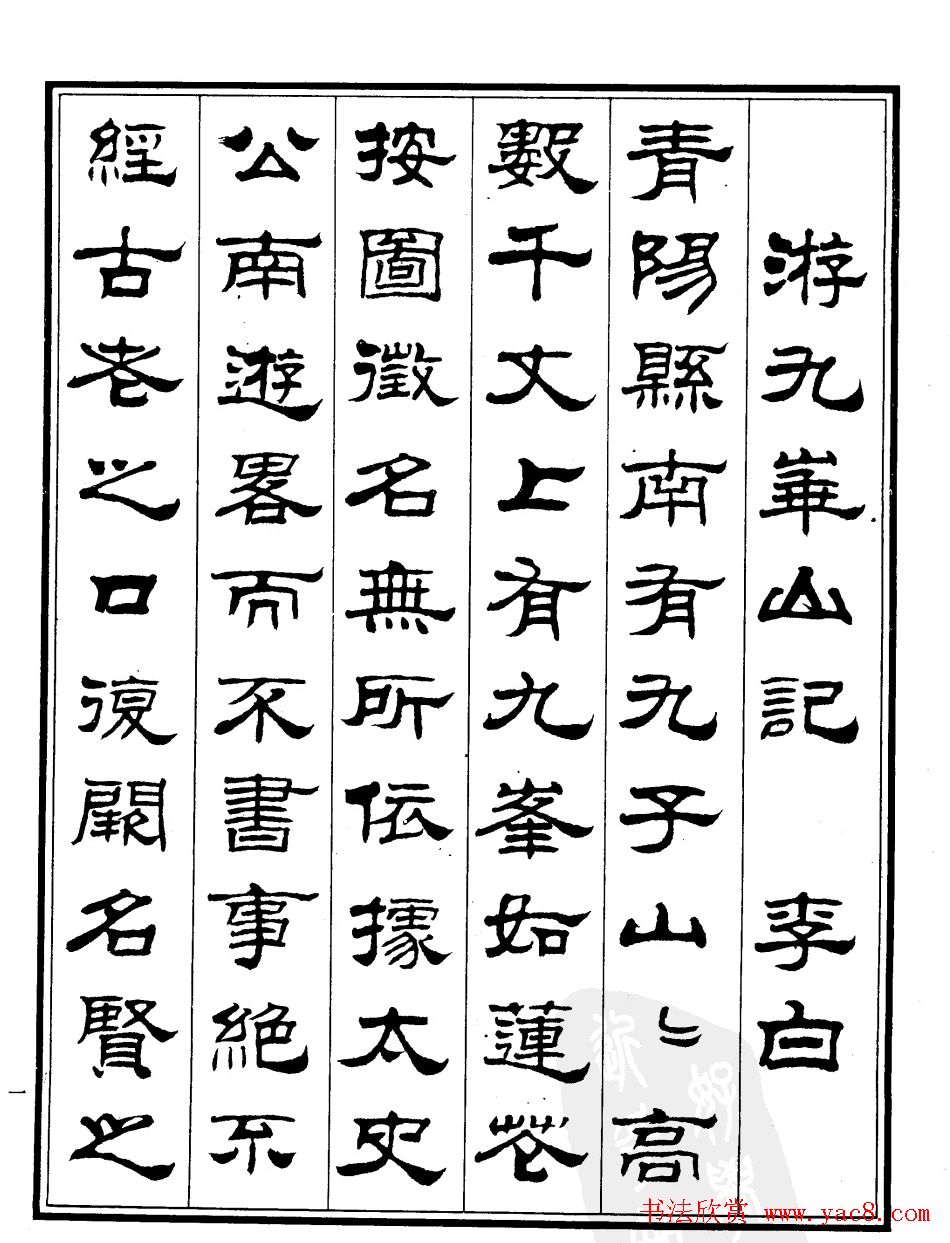 游九華山記 李白
青陽縣南有九子山〻高
數千丈上有九峯如蓮花
按圖徵名無所依據太史
公南遊畧而不書事絕不
經古老之口復闕名賢之
一
书法欣赏 www.yac8.com